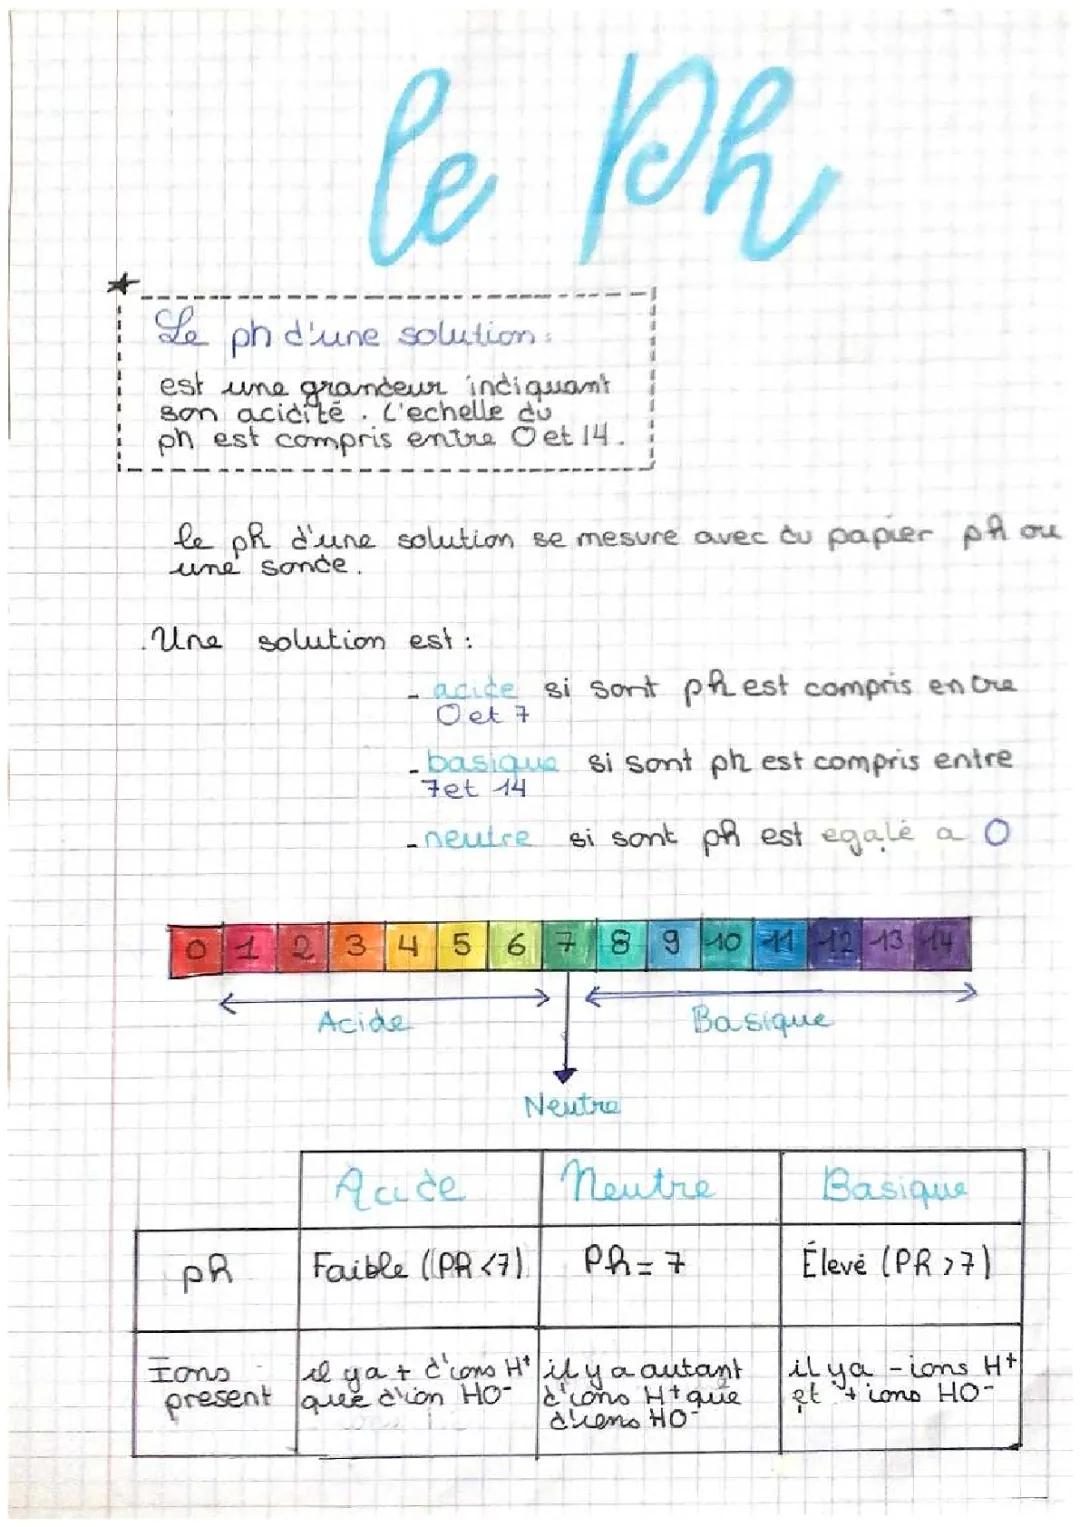 le Ph
Le ph d'une solution :
est une grandeur indiquant
son acidité. L'echelle du
ph est compris entre 0 et 14.
le ph d'une solution se mesure avec du papier ph ou
une sonde.
. Une solution est :
- acide si sont ph est compris entre
0 et 7
- basique si sont ph est compris entre
7 et 14
- neutre si sont ph est egale a 0
0 1 2 3 4 5 6 7 8 9 10 11 12 13 14
Acide Basique
Neutre
Acide Neutre Basique
pH Faible (PH <7) Ph = 7 Élevé (PH >7)
Ions il y a + d'ions H+ il y a autant il y a - ions H+
present que d'ion HO- d'ions H+ que et + ions HO-
d'iens HO-